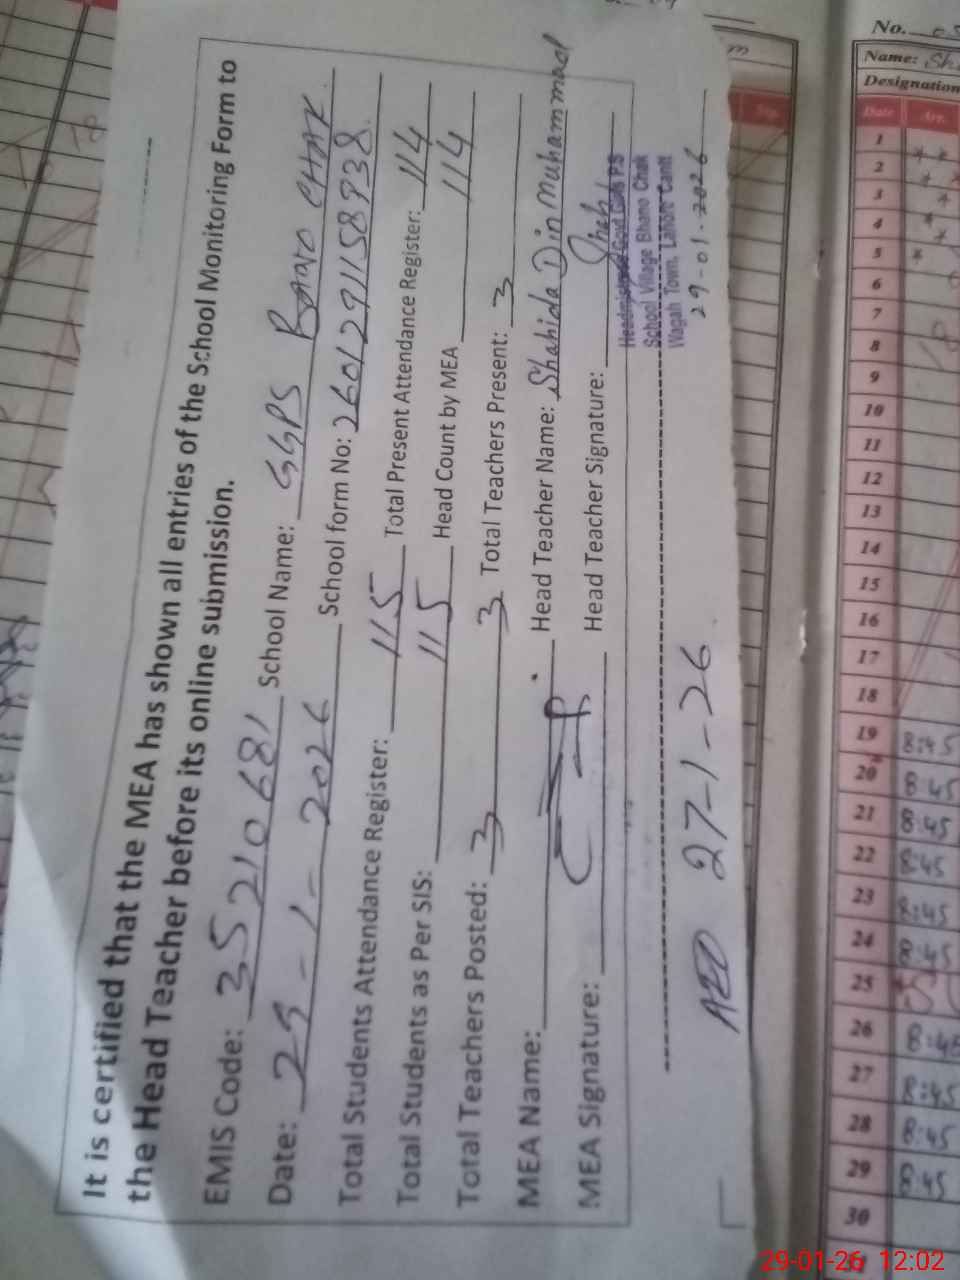 It is certified that the MEA has shown all entries of the School Monitoring Form to
the Head Teacher before its online submission.
EMIS Code: 35210681 School Name: GGPS BANO CHAK
Date: 29-1-2026 School form No: 2601291158938
Total Students Attendance Register: 115 Total Present Attendance Register: 114
Total Students as Per SIS: 115 Head Count by MEA 114
Total Teachers Posted: 3 3 Total Teachers Present: 3
MEA Name: Head Teacher Name: Shahida Din Muhammad
MEA Signature: Head Teacher Signature: Shahi
Headmistress Govt Girls P.S
School Village Bhano Chak
Wagah Town, Lahore Cantt
29-01-2026
AEO 27-1-26
No.
Name: Sh
Designation
Date Arr.
1
2
3
4
5
6
7
8
9
10
11
12
13
14
15
16
17
18
19 8:45
20 8:45
21 8:45
22 8:45
23 8:45
24 8:45
25
26 8:45
27 8:45
28 8:45
29 8:45
30
29-01-26 12:02